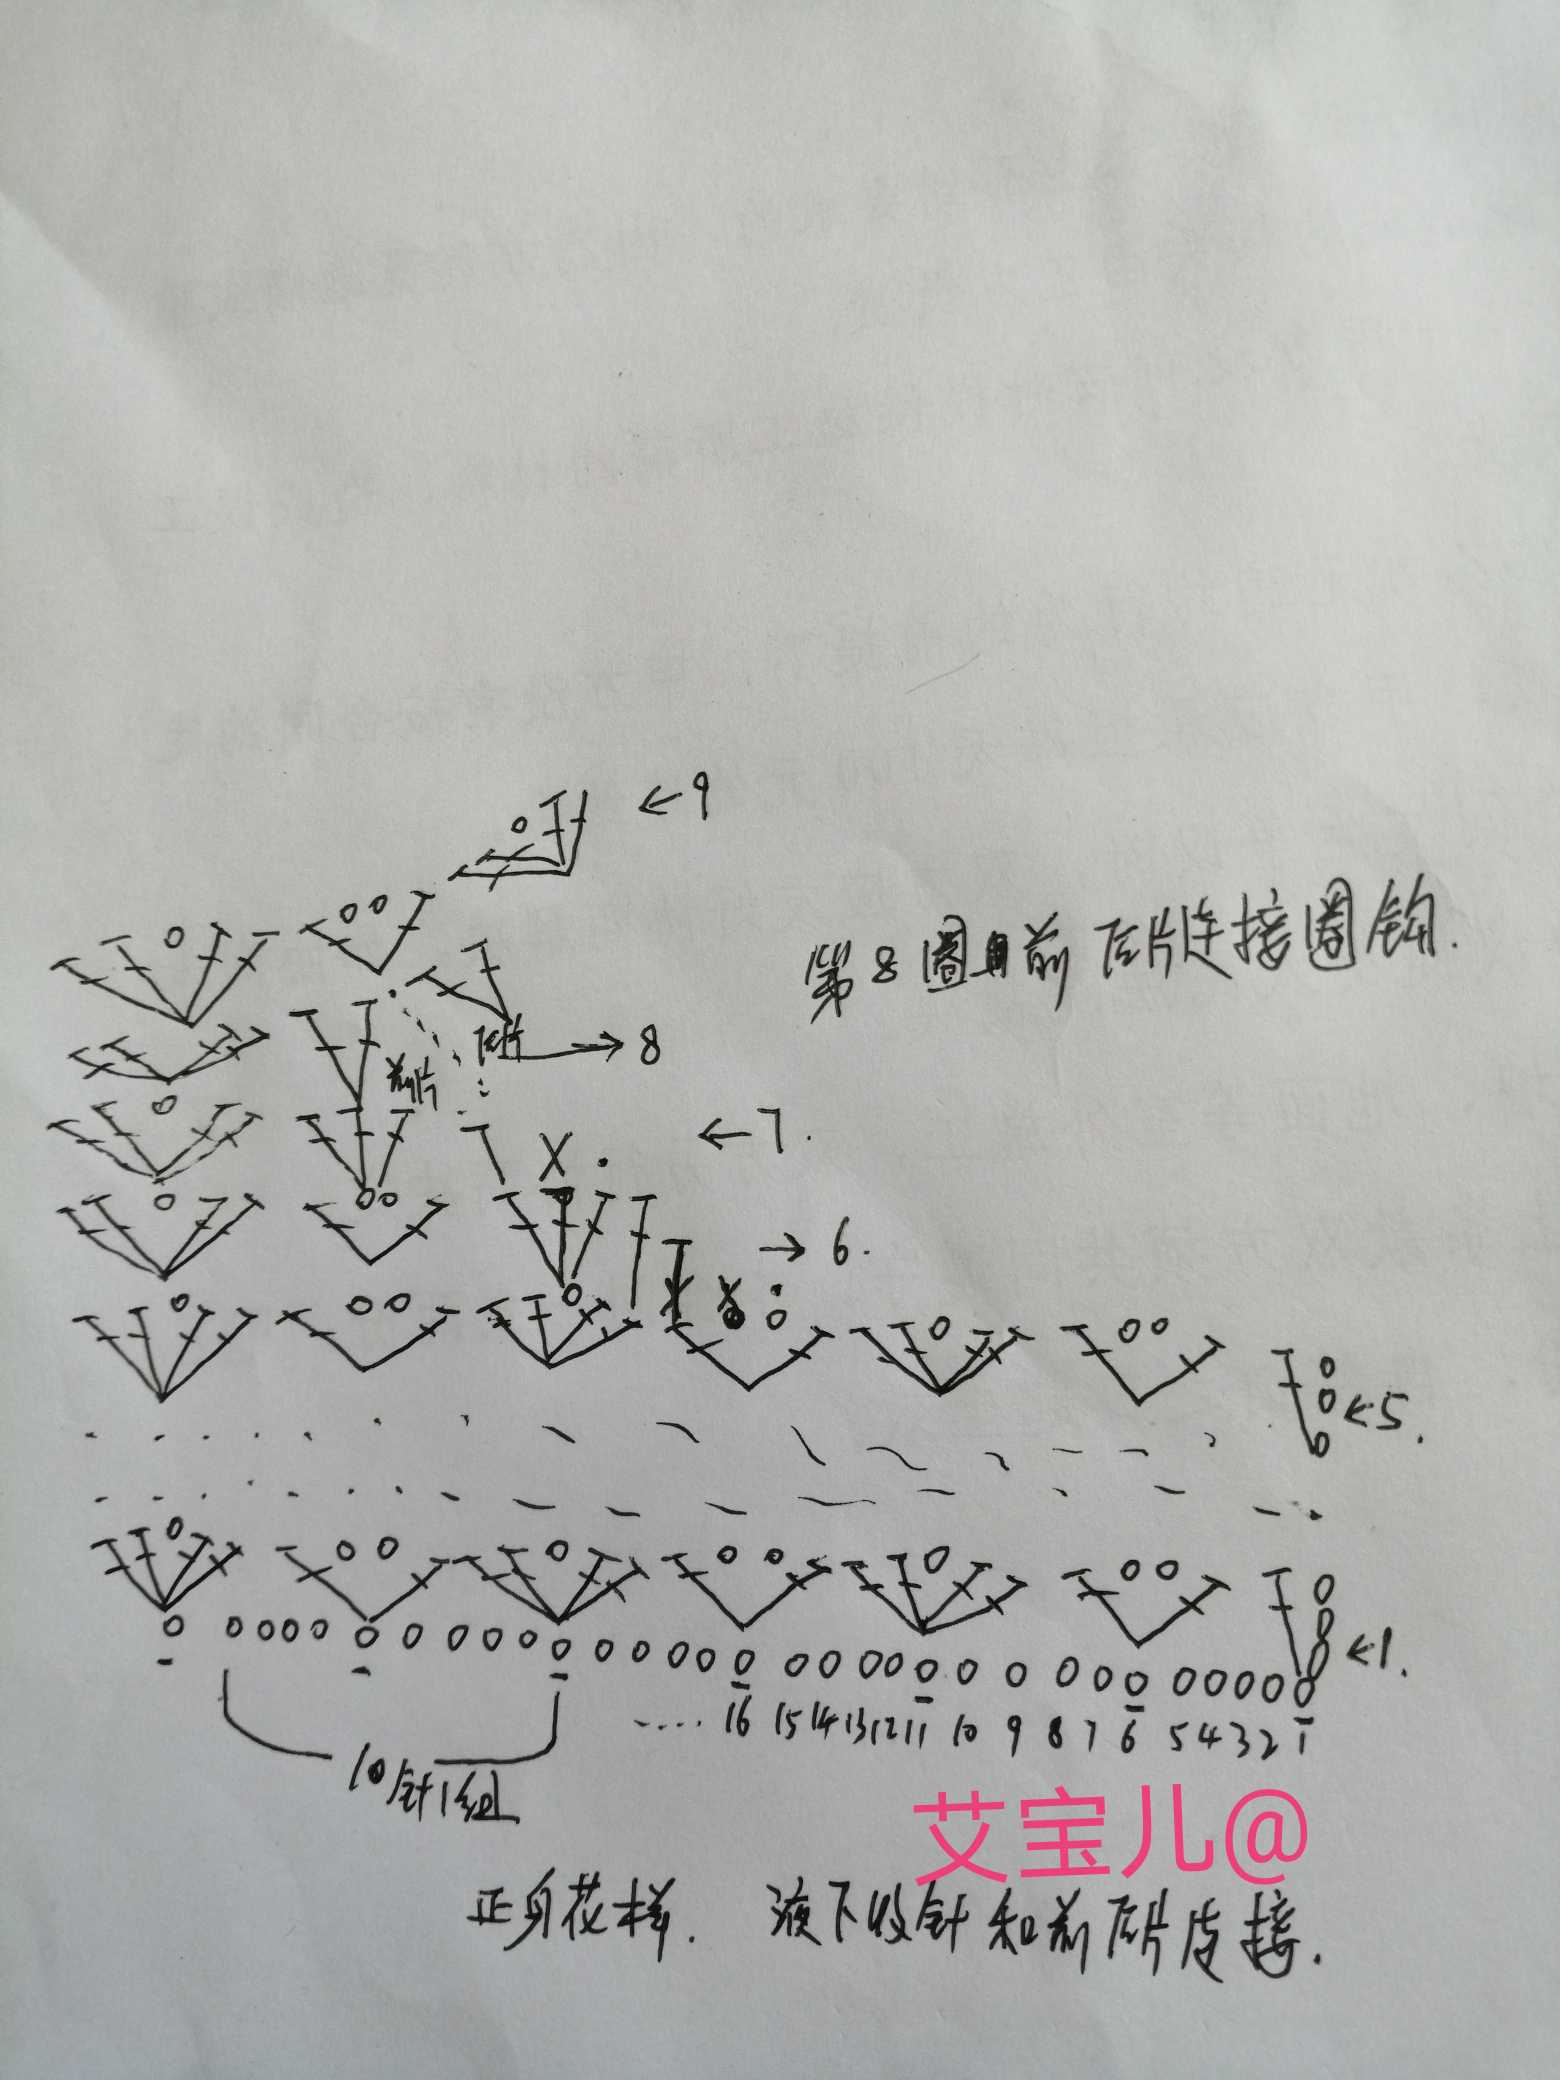 ←9
第8圈由前后片连接圈钩.
后片
→8
前片
←7.
→6.
←5.
←1.
.... 16 15 14 13 12 11 10 9 8 7 6 5 4 3 2 1
10针1组
艾宝儿@
正身花样. 液下收针和前后片连接.